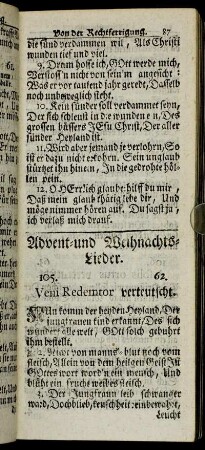 Von der Rechtfertigung. 87
die sünd verdammen wil, Als Christi
wunden tief und viel.
9. Drum hoffe ich, GOtt werde mich,
Verstoss'n nicht von sein'm angesicht:
Was er vor tausend jahr geredt, Dasselb
noch unbeweglich steht.
10. Kein sünder soll verdammet seyn,
Der sich schleust in die wunden ein, Des
grossen büssers JEsu Christ, Der aller
sünder Heyland ist.
11. Wird aber jemand je verlohrn, So
ist er dazu nicht erkohrn. Sein unglaub
stürtzet ihn hinein, In die gedrohte höl-
len pein.
12. O HErr, ich glaub: hilf du mir,
Daß mein glaub thätig lebe dir, Und
möge nimmer hören auf. Du sagst ja,
ich verlaß mich drauf.
Advent- und Weihnachts-
Lieder.
105. 62.
Veni Redemtor verteutscht.
NUn komm der heyden Heyland, Der
jungfrauen kind erkannt, Des sich
wundert alle welt, GOtt solch geburt
ihm bestellt.
2. Nicht von manns- blut noch vom
fleisch, Allein von dem heilgen Geist Ist
GOttes wort word'n ein mensch, und
blüht ein frucht weibes fleisch.
3. Der Jungfrauen leib schwanger
ward, Doch blieb, keuschheit rein bewahrt,
Leucht